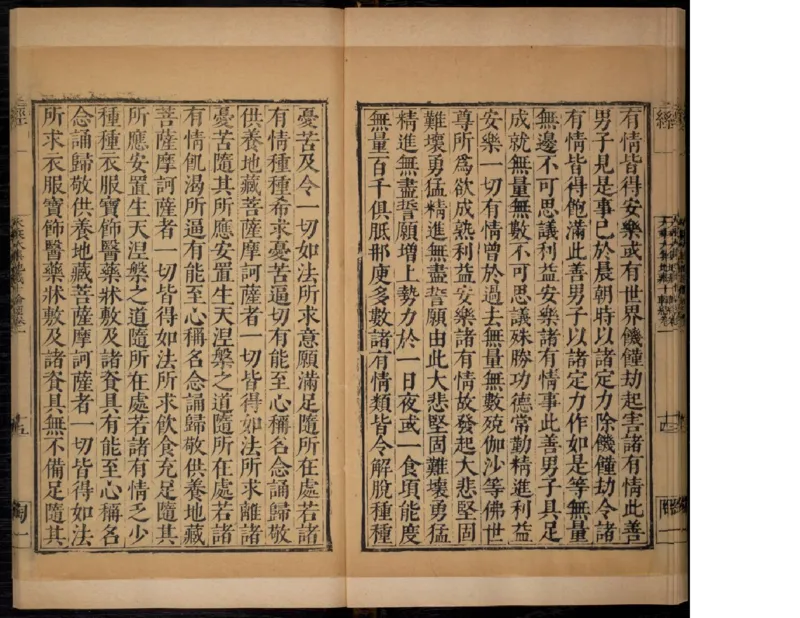 有情皆得安樂或有世界饑饉劫起害諸有情此善
男子見是事已於晨朝時以諸定力除饑饉劫令諸
有情皆得飽滿此善男子以諸定力作如是等無量
無邊不可思議利益安樂諸有情事此善男子具足
成就無量無數不可思議殊勝功德常勤精進利益
安樂一切有情曾於過去無量無數殑伽沙等佛世
尊所為欲成熟利益安樂諸有情故發起大悲堅固
難壞勇猛精進無盡誓願由此大悲堅固難壞勇猛
精進無盡誓願增上勢力於一日夜或一食頃能度
無量百千俱胝那庾多數諸有情類皆令解脫種種
憂苦及令一切如法所求意願滿足隨所在處若諸
有情種種希求憂苦逼切有能至心稱名念誦歸敬
供養地藏菩薩摩訶薩者一切皆得如法所求離諸
憂苦隨其所應安置生天涅槃之道隨所在處若諸
有情飢渴所逼有能至心稱名念誦歸敬供養地藏
菩薩摩訶薩者一切皆得如法所求飲食充足隨其
所應安置生天涅槃之道隨所在處若諸有情乏少
種種衣服寶飾醫藥牀敷及諸資具有能至心稱名
念誦歸敬供養地藏菩薩摩訶薩者一切皆得如法
所求衣服寶飾醫藥牀敷及諸資具無不備足隨其